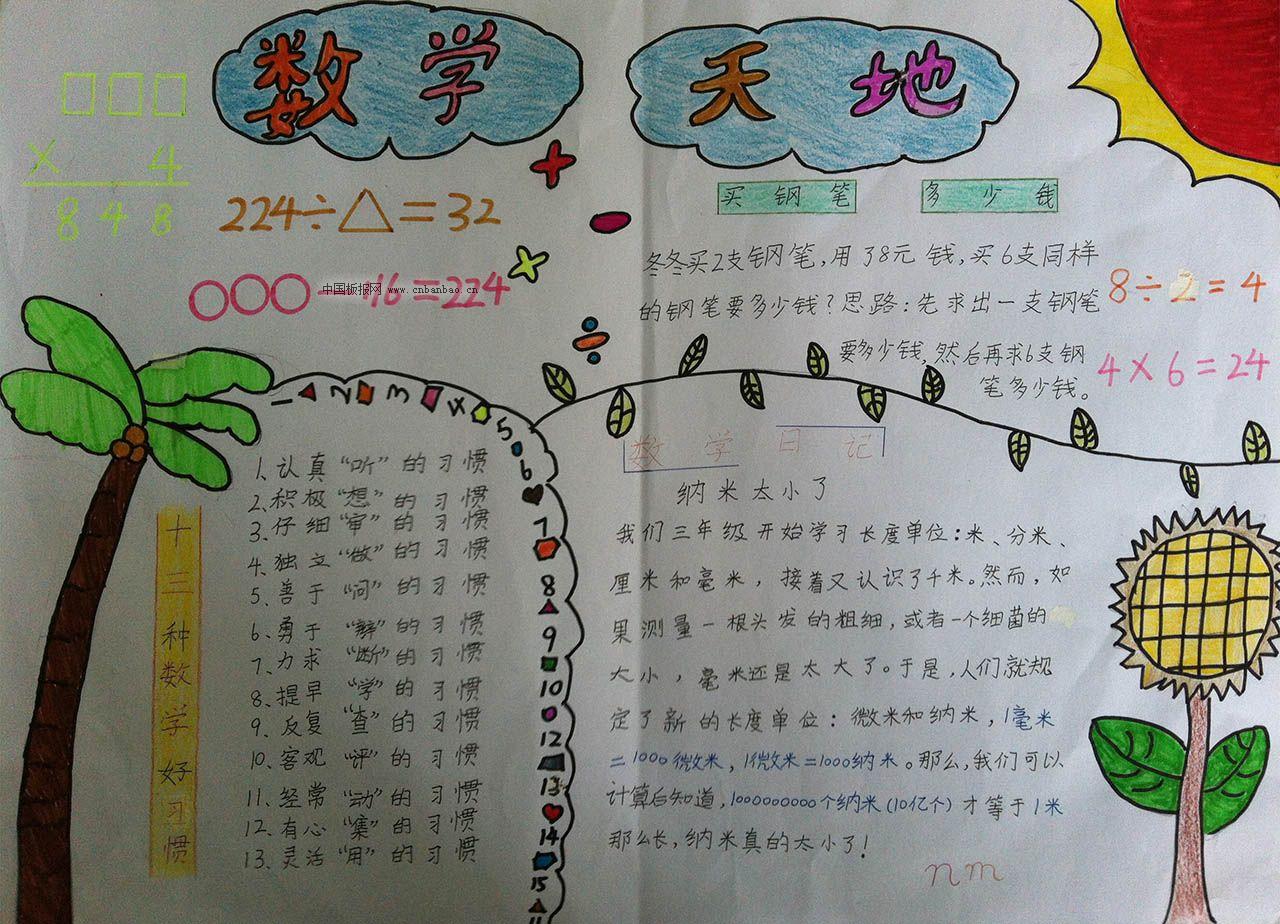 数学 天地
□□□
× 4
848
224÷△=32
○○○-16=224
中国板报网 www.cnbanbao.cn
买钢笔 多少钱
冬冬买2支钢笔,用了8元钱,买6支同样
的钢笔要多少钱?思路:先求出一支钢笔
要多少钱,然后再求6支钢
笔多少钱。
8÷2=4
4×6=24
1 2 3 4 5 6 7 8 9 10 12 13 14 15
十三种数学好习惯
1、认真“听”的习惯
2、积极“想”的习惯
3、仔细“审”的习惯
4、独立“做”的习惯
5、善于“问”的习惯
6、勇于“辩”的习惯
7、力求“断”的习惯
8、提早“学”的习惯
9、反复“查”的习惯
10、客观“评”的习惯
11、经常“动”的习惯
12、有心“集”的习惯
13、灵活“用”的习惯
数学日记
纳米太小了
我们三年级开始学习长度单位:米、分米、
厘米和毫米,接着又认识了千米。然而,如
果测量一根头发的粗细,或者一个细菌的
大小,毫米还是太大了。于是,人们就规
定了新的长度单位:微米和纳米,1毫米
=1000微米,1微米=1000纳米。那么,我们可以
计算后知道,1000000000个纳米(10亿个)才等于1米
那么长,纳米真的太小了!
nm